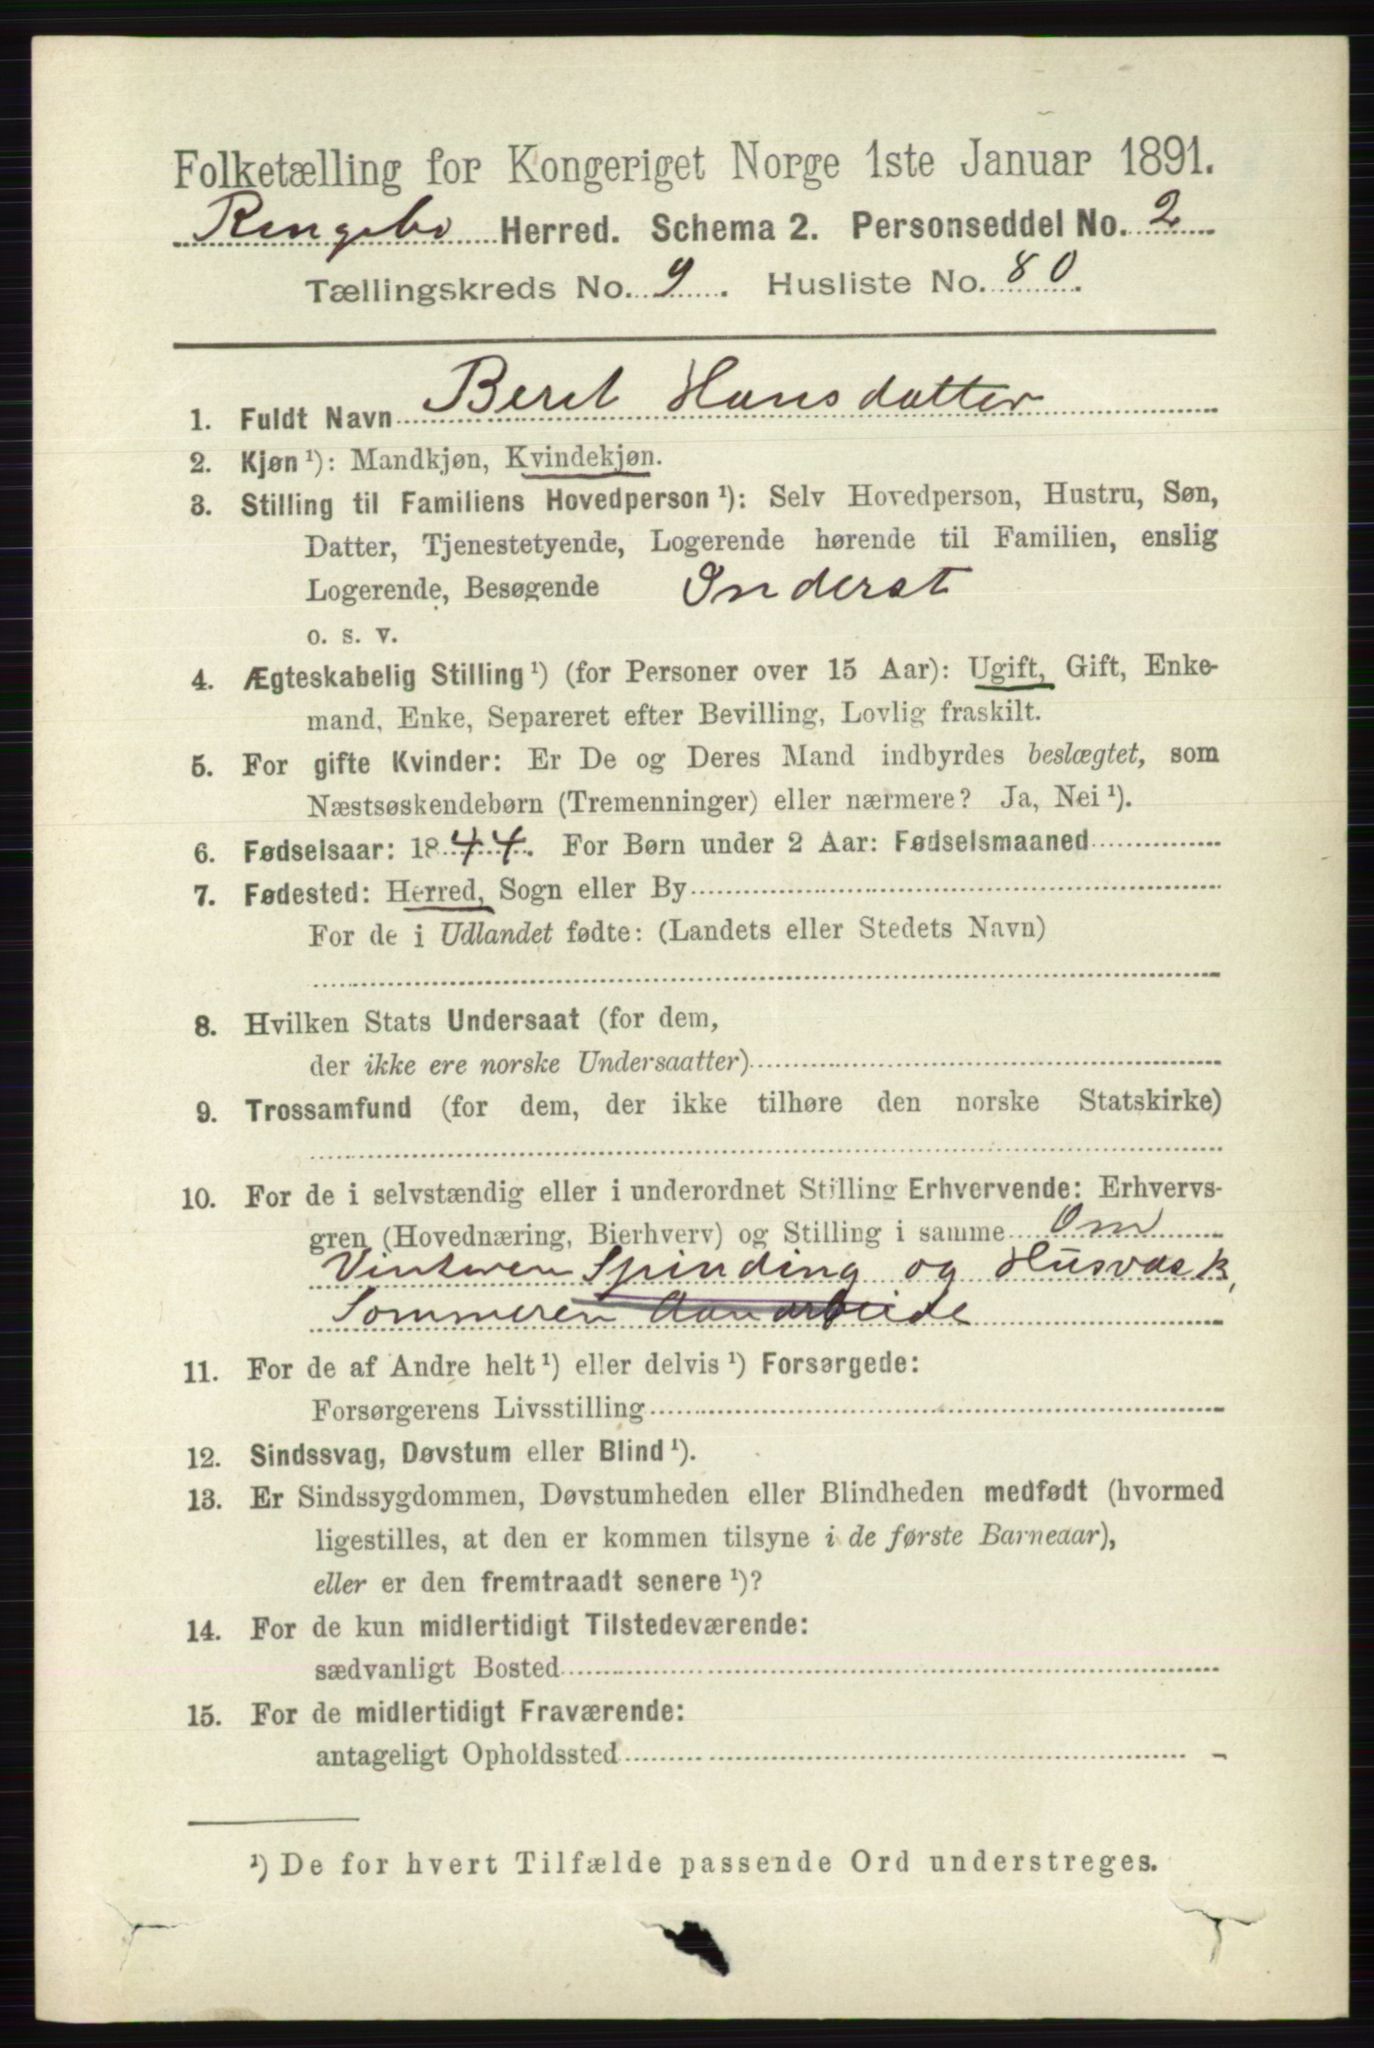 Folketælling for Kongeriget Norge 1ste Januar 1891.
Ringebo Herred. Schema 2. Personseddel No. 2
Tællingskreds No. 9. Husliste No. 80.
1. Fuldt Navn Beret Hansdatter
2. Kjøn ¹): Mandkjøn, Kvindekjøn.
3. Stilling til Familiens Hovedperson ¹): Selv Hovedperson, Hustru, Søn,
Datter, Tjenestetyende, Logerende hørende til Familien, enslig
Logerende, Besøgende Inderst
o. s. v.
4. Ægteskabelig Stilling ¹) (for Personer over 15 Aar): Ugift, Gift, Enke-
mand, Enke, Separeret efter Bevilling, Lovlig fraskilt.
5. For gifte Kvinder: Er De og Deres Mand indbyrdes beslægtet, som
Næstsøskendebørn (Tremenninger) eller nærmere? Ja, Nei ¹).
6. Fødselsaar: 1844. For Børn under 2 Aar: Fødselsmaaned
7. Fødested: Herred, Sogn eller By
For de i Udlandet fødte: (Landets eller Stedets Navn)
8. Hvilken Stats Undersaat (for dem,
der ikke ere norske Undersaatter)
9. Trossamfund (for dem, der ikke tilhøre den norske Statskirke)
10. For de i selvstændig eller i underordnet Stilling Erhvervende: Erhvervs-
gren (Hovednæring, Bierhverv) og Stilling i samme Om
Vinteren Spinding og Husvask,
Sommeren Aanarbeide
11. For de af Andre helt ¹) eller delvis ¹) Forsørgede:
Forsørgerens Livsstilling
12. Sindssvag, Døvstum eller Blind ¹).
13. Er Sindssygdommen, Døvstumheden eller Blindheden medfødt (hvormed
ligestilles, at den er kommen tilsyne i de første Barneaar),
eller er den fremtraadt senere ¹)?
14. For de kun midlertidigt Tilstedeværende:
sædvanligt Bosted
15. For de midlertidigt Fraværende:
antageligt Opholdssted
¹) De for hvert Tilfælde passende Ord understreges.